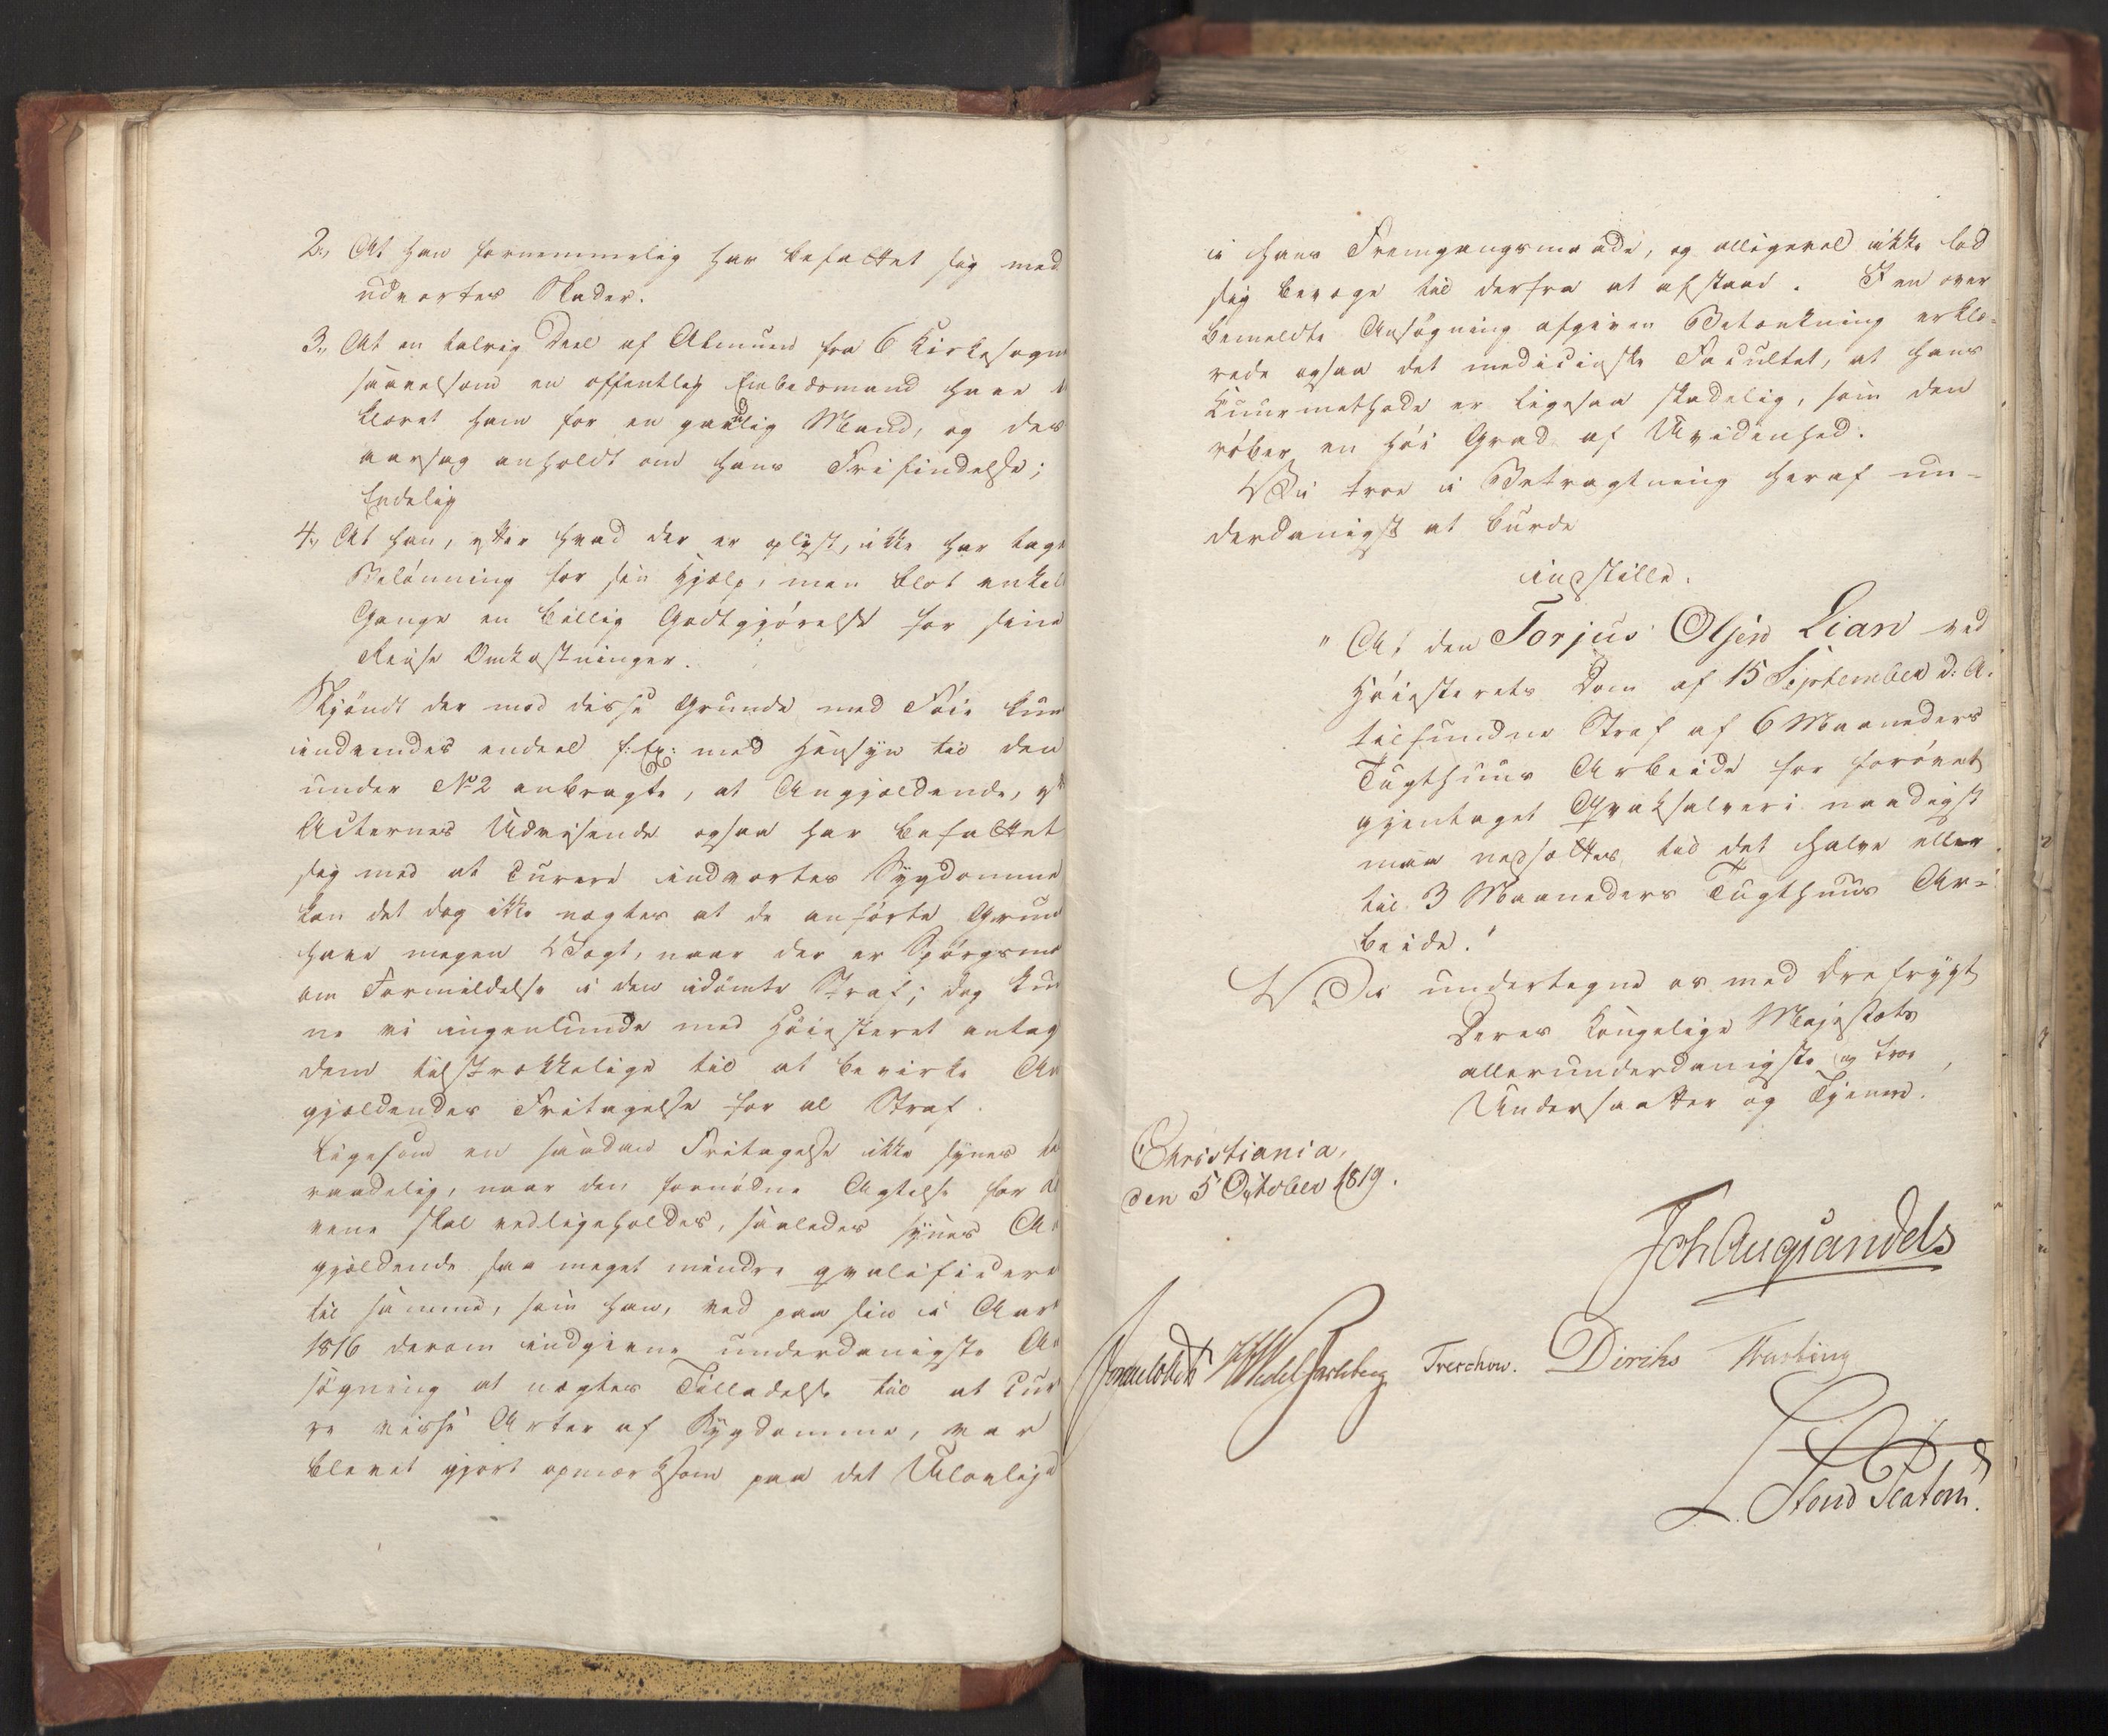 2., At han fornemmelig har befattet sig med
udvortes Skader.
3., At en talrig Deel af Almuen fra 6 Kirkesogne
saavelsom en offentlig Embedsmand have
klæret ham for en gavnlig Mand, og des
aarsag anholdt om hans Frifindelse;
Endelig
4., At han, efter hvad der er oplyst, ikke har tage
Belönning for sin Hjælp, men blot enkel
Gange en billig Godtgjörelse for sine
Reise Omkostninger.
Skjöndt der mod disse Grunde med Föie kun
indvendes endeel f: Ex: med Hensyn til den
under No 2 anbragte, at Angjældende,
Acternes Udvisende ogsaa har befattet
sig med at curere indvortes Sygdomme
kan det dog ikke nægtes at de anförte Grun
have megen Vægt, naar der er Spörgsmaa
om Formildelse i den idömte Straf; dog kun
ne vi ingenlunde med Höiesteret antag
dem tilstrækkelige til at bevirke An
gjældendes Fritagelse for al Straf.
Ligesom en saadan Fritagelse ikke synes til
raadelig, naar den fornödne Agtelse for
vene skal vedligeholdes, saaledes synes An
gjældende saa meget mindre qvalificere
til samme, som han, ved paa sin i Aaret
1816 derom indgivne underdanigste An
sögning at nægtes Tilladelse til at cure
re visse Arter af Sygdomme, var
blevet gjort opmærksom paa det Ulovlige
i hans Fremgangsmaade, og alligevel ikke lod
sig bevæge til derfra at afstaae. I en over
bemeldte Ansögning afgiven Betænkning erklæ-
rede ogsaa det medicinske Facultet, at hans
Kuurmethode er ligesaa skadelig, som den
röber en höi Grad af Uvidenhed.
Vi troe i Betragtning heraf un-
derdanigst at burde
indstille:
"At den Torjus Olsen Lian ved
Höiesterets Dom af 15 September d: A.
tilfundne Straf af 6 Maaneders
Tugthuus Arbeide for forövet
gjentaget Qvaksalveri naadigst
maa nedsættes til det halve eller
til 3 Maaneders Tugthuus Ar-
beide."
Vi undertegne os med Ærefrygt
Deres Kongelige Majestæts
allerunderdanigste og troe
Undersaatter og Tjenere.
Christiania,
den 5 October 1819.
Joh Aug Sandels
Sommerhielm HWedel Jarlsberg Treschow. Diriks Fasting
L. Stoud Platou.